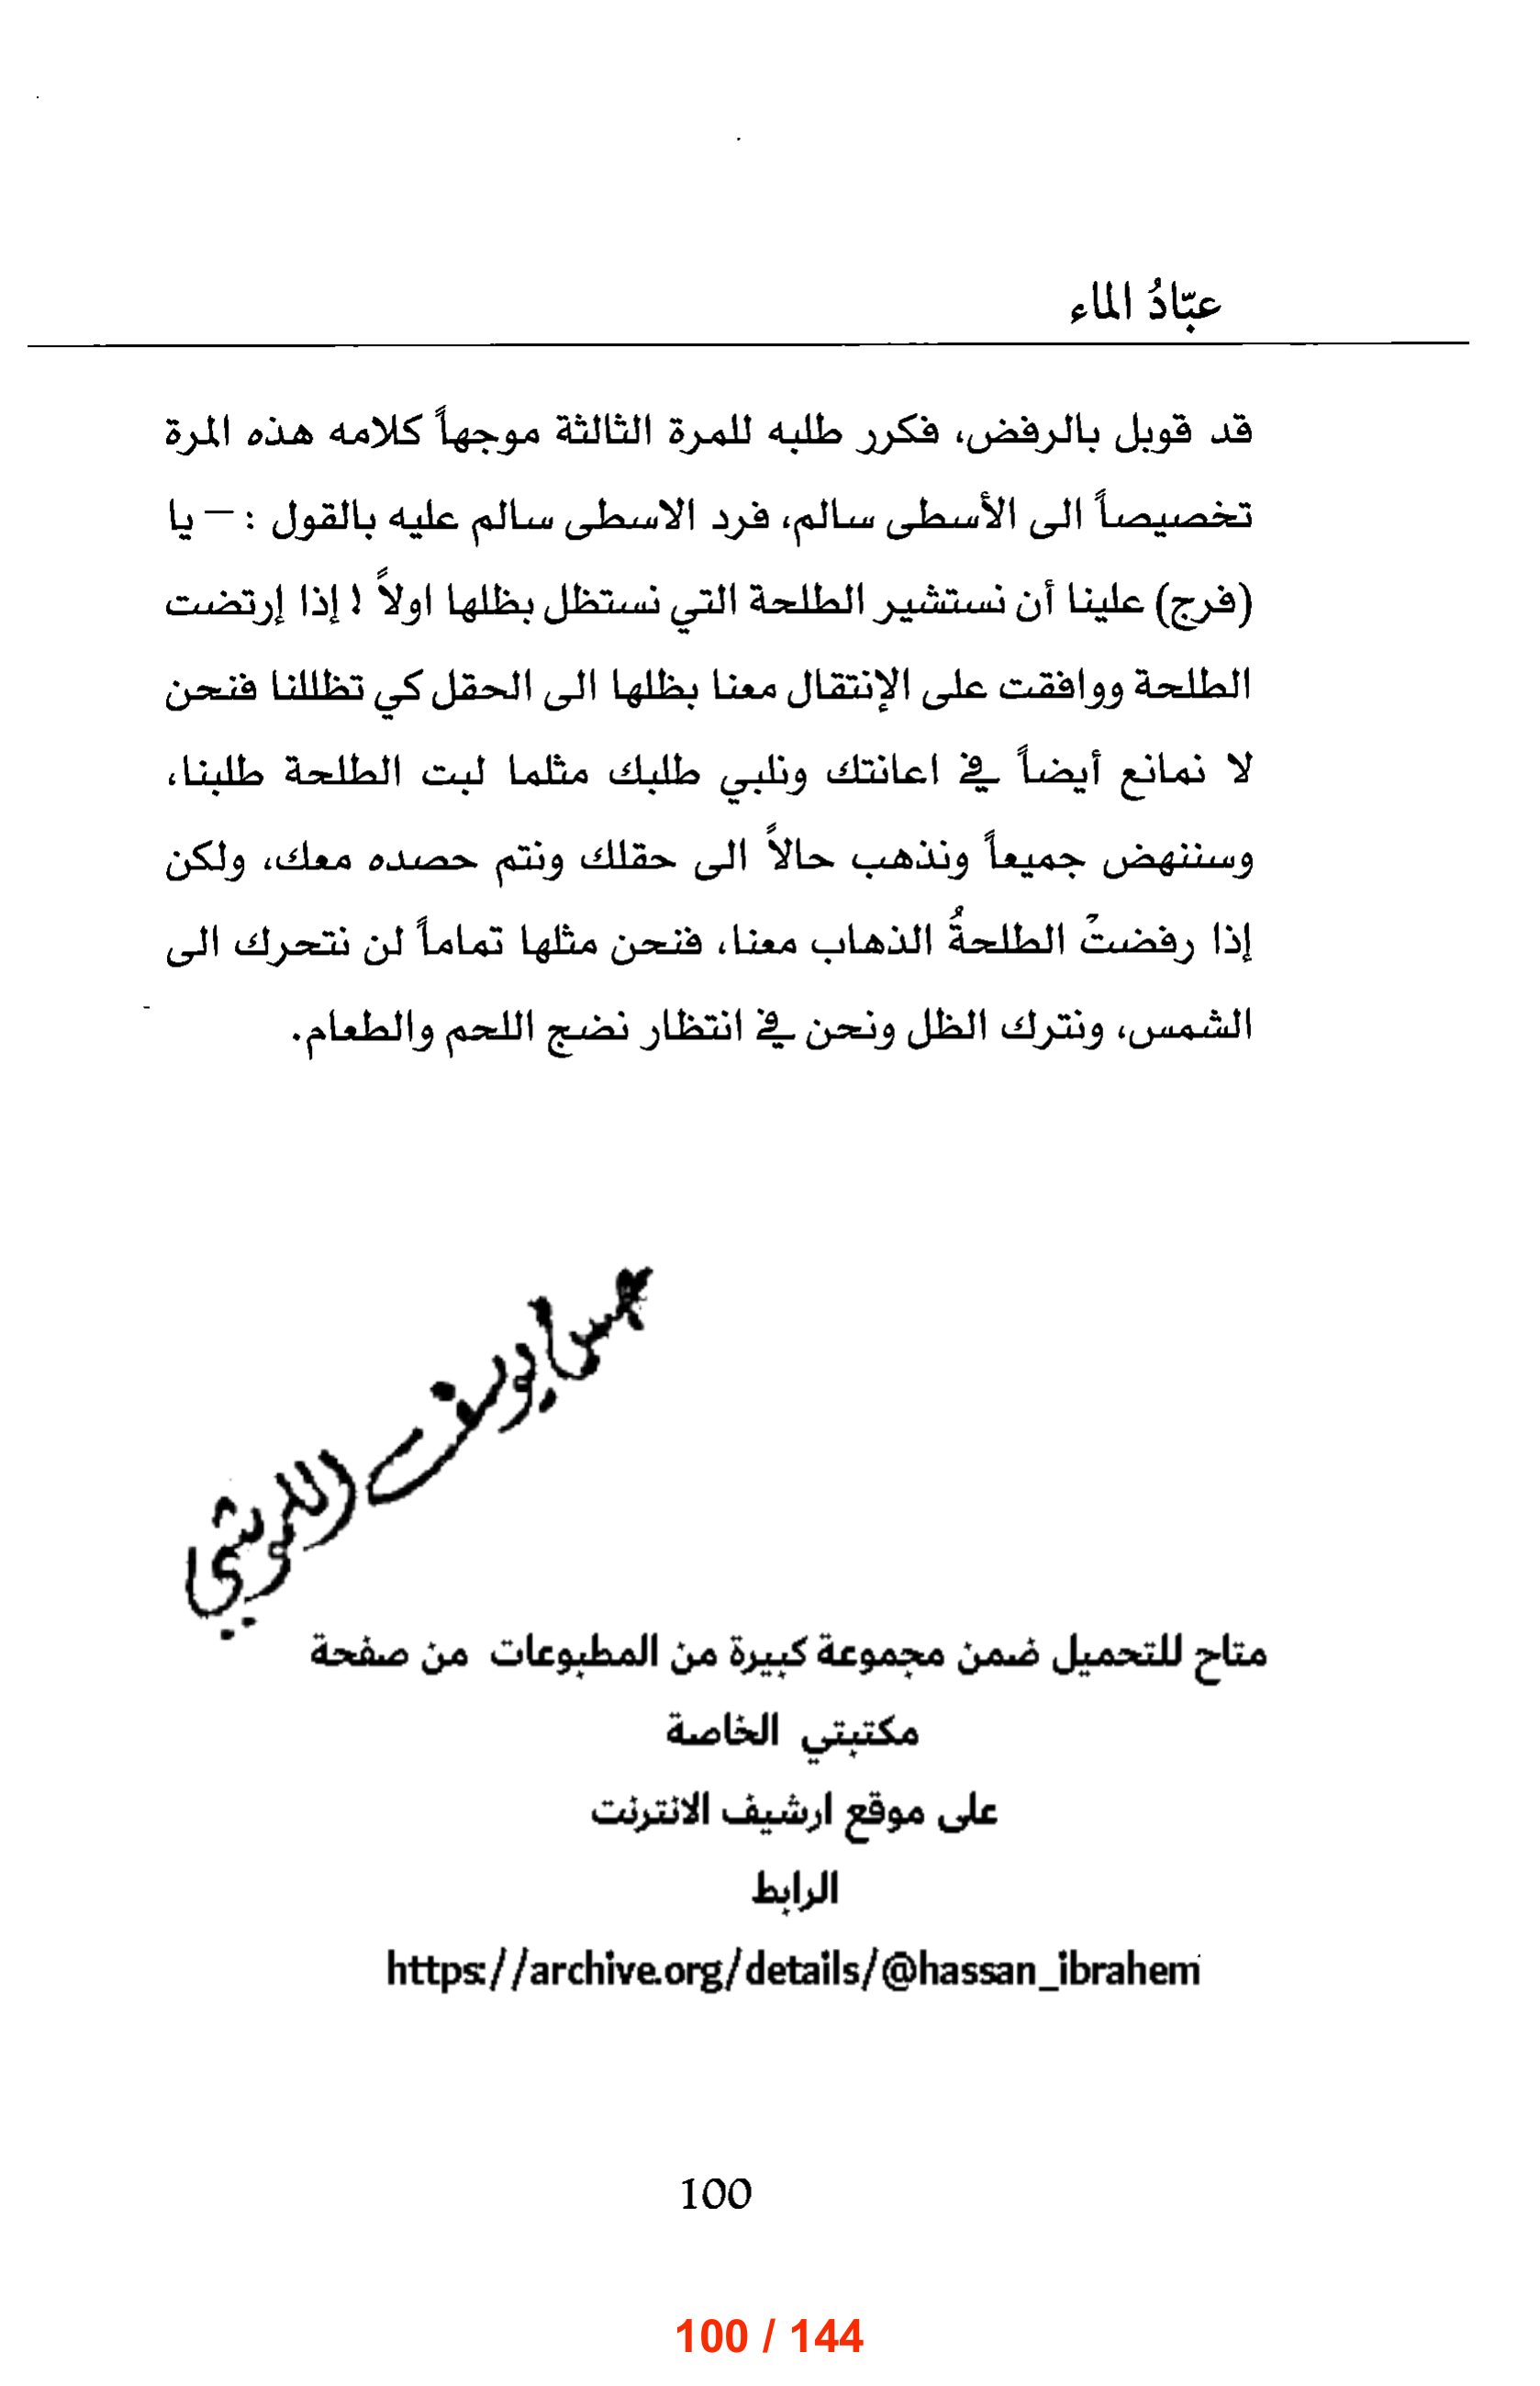 عبّادُ الماء
قد قوبل بالرفض، فكرر طلبه للمرة الثالثة موجهاً كلامه هذه المرة
تخصيصاً الى الأسطى سالم، فرد الاسطى سالم عليه بالقول : – يا
(فرج) علينا أن نستشير الطلحة التي نستظل بظلها اولاً ! إذا إرتضت
الطلحة ووافقت على الإنتقال معنا بظلها الى الحقل كي تظللنا فنحن
لا نمانع أيضاً في اعانتك ونلبي طلبك مثلما لبت الطلحة طلبنا،
وسننهض جميعاً ونذهب حالاً الى حقلك ونتم حصده معك، ولكن
إذا رفضتْ الطلحةُ الذهاب معنا، فنحن مثلها تماماً لن نتحرك الى
الشمس، ونترك الظل ونحن في انتظار نضج اللحم والطعام.
متاح للتحميل ضمن مجموعة كبيرة من المطبوعات من صفحة
مكتبتي الخاصة
على موقع ارشيف الانترنت
الرابط
https://archive.org/details/@hassan_ibrahem
100
100 / 144